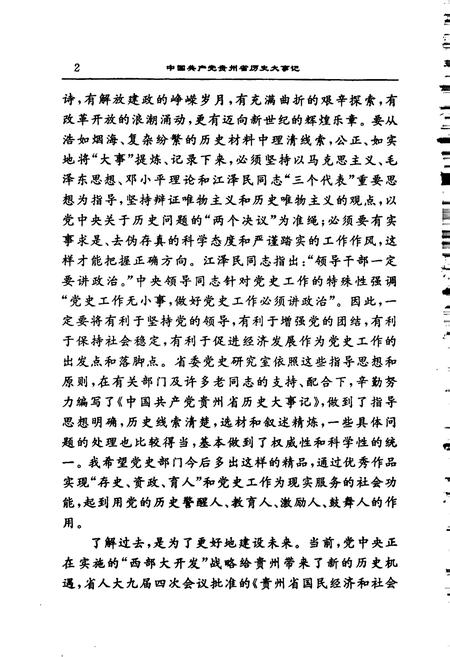 2 中国共产党贵州省历史大事记
诗，有解放建政的峥嵘岁月，有充满曲折的艰辛探索，有
改革开放的浪潮涌动，更有迈向新世纪的辉煌乐章。要从
浩如烟海、复杂纷繁的历史材料中理清线索，公正、如实
地将“大事”提炼、记录下来，必须坚持以马克思主义、毛
泽东思想、邓小平理论和江泽民同志“三个代表”重要思
想为指导，坚持辩证唯物主义和历史唯物主义的观点，以
党中央关于历史问题的“两个决议”为准绳；必须要有实
事求是、去伪存真的科学态度和严谨踏实的工作作风，这
样才能把握正确方向。江泽民同志指出：“领导干部一定
要讲政治。”中央领导同志针对党史工作的特殊性强调
“党史工作无小事，做好党史工作必须讲政治”。因此，一
定要将有利于坚持党的领导，有利于增强党的团结，有利
于保持社会稳定，有利于促进经济发展作为党史工作的
出发点和落脚点。省委党史研究室依照这些指导思想和
原则，在有关部门及许多老同志的支持、配合下，辛勤努
力编写了《中国共产党贵州省历史大事记》，做到了指导
思想明确，历史线索清楚，选材和叙述精炼，一些具体问
题的处理也比较得当，基本做到了权威性和科学性的统
一。我希望党史部门今后多出这样的精品，通过优秀作品
实现“存史、资政、育人”和党史工作为现实服务的社会功
能，起到用党的历史警醒人、教育人、激励人、鼓舞人的作
用。
了解过去，是为了更好地建设未来。当前，党中央正
在实施的“西部大开发”战略给贵州带来了新的历史机
遇，省人大九届四次会议批准的《贵州省国民经济和社会